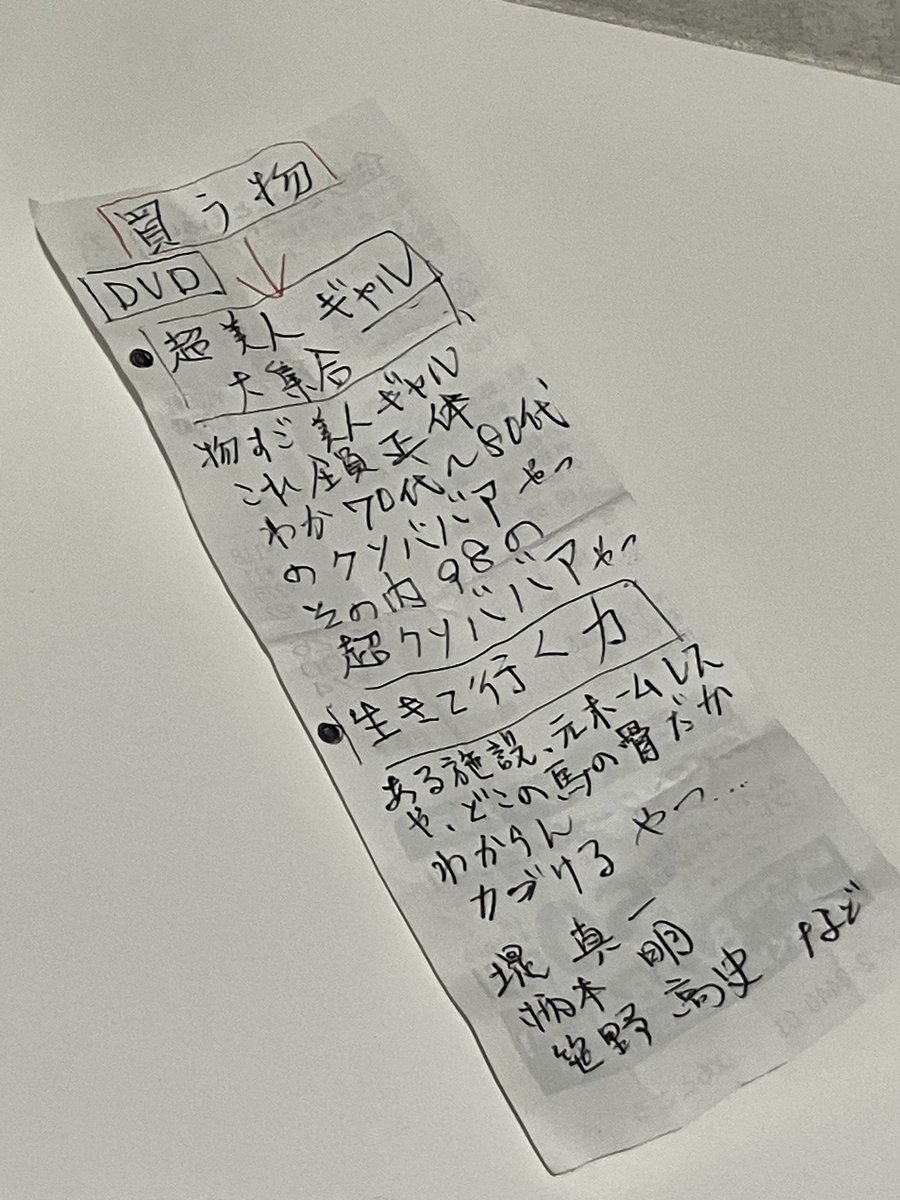 買う物
DVD
超美人ギャル
大集合
物すご美人ギャル
これ全員正体
わか70代〜80代
のクソババアやつ
その内98の
超クソババアやつ
生きて行く力
ある施設、元ホームレス
や、どこの馬の骨だか
わからん
カヅけるやつ…
堤真一
柄本明
笹野高史など